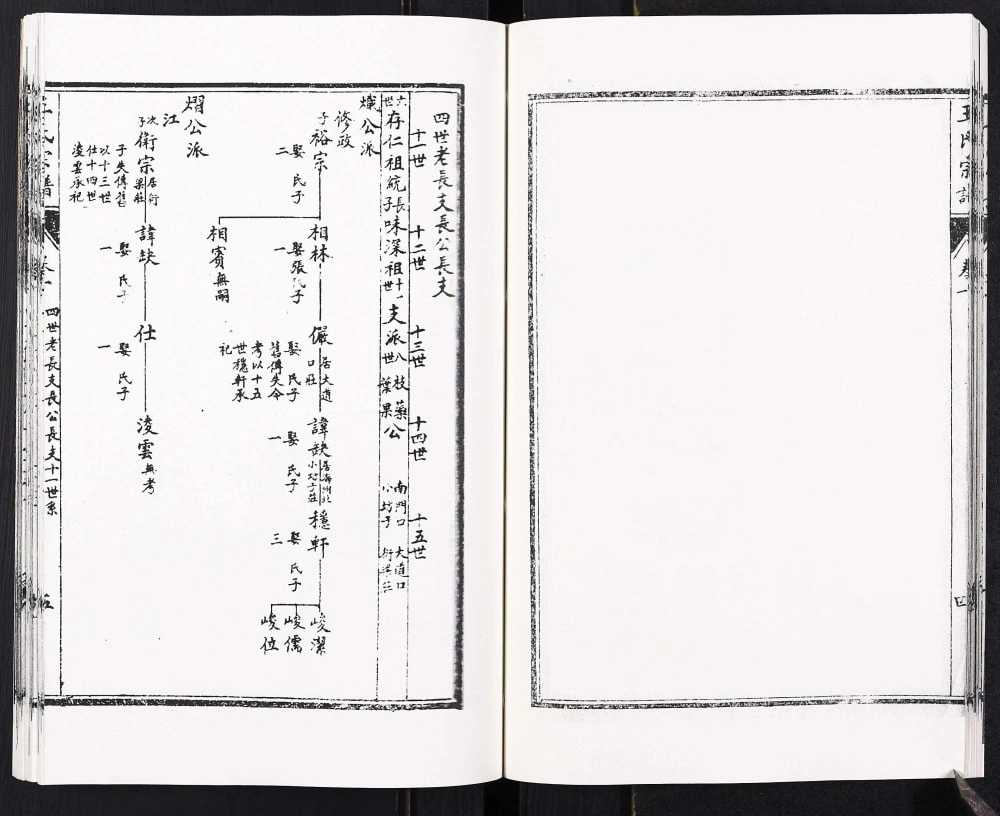 王氏宗譜
卷一
四
四世老長支長公長支
十一世 十二世 十三世 十四世 十五世
六世存仁祖統長子味深祖十一世支派八世枝葉 藥果公 南門口 小坊子 大道口
熾公派
修政
子裕宗
娶 氏子二
相林
娶張氏子一
相賓無嗣
儼居大道口莊
娶 氏子
舊傳失今
考以十五
世穩軒承
祀
諱缺居海州北
娶 氏子一
穩軒
娶 氏子三
峻潔
峻儒
峻位
熠公派
江
次子衛宗居衍渠莊
子失傳舊
以十三世
仕十四世
淩雲承祀
諱缺
娶 氏子一
仕
娶 氏子一
淩雲無考
王氏宗譜
卷一
四世老長支長公長支十一世系
五